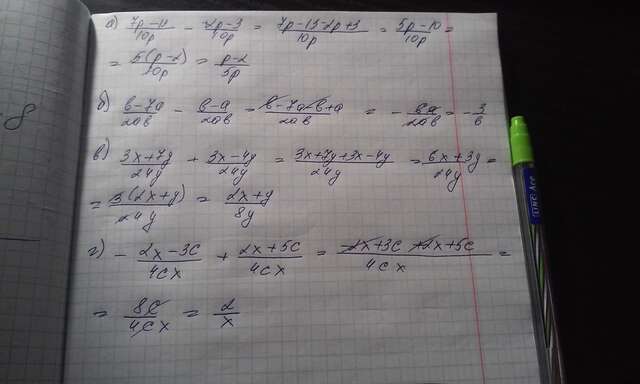 а) 7p-13/10p - 2p-3/10p = 7p-13-2p+3/10p = 5p-10/10p =
= 5(p-2)/10p = p-2/5p
б) в-7а/2ав - в-а/2ав = в-7а-в+а/2ав = - 6а/2ав = - 3/в
в) 3x+7y/24y + 3x-4y/24y = 3x+7y+3x-4y/24y = 6x+3y/24y =
= 3(2x+y)/24y = 2x+y/8y
г) - 2x-3c/4cx + 2x+5c/4cx = -2x+3c+2x+5c/4cx =
= 8c/4cx = 2/x
8